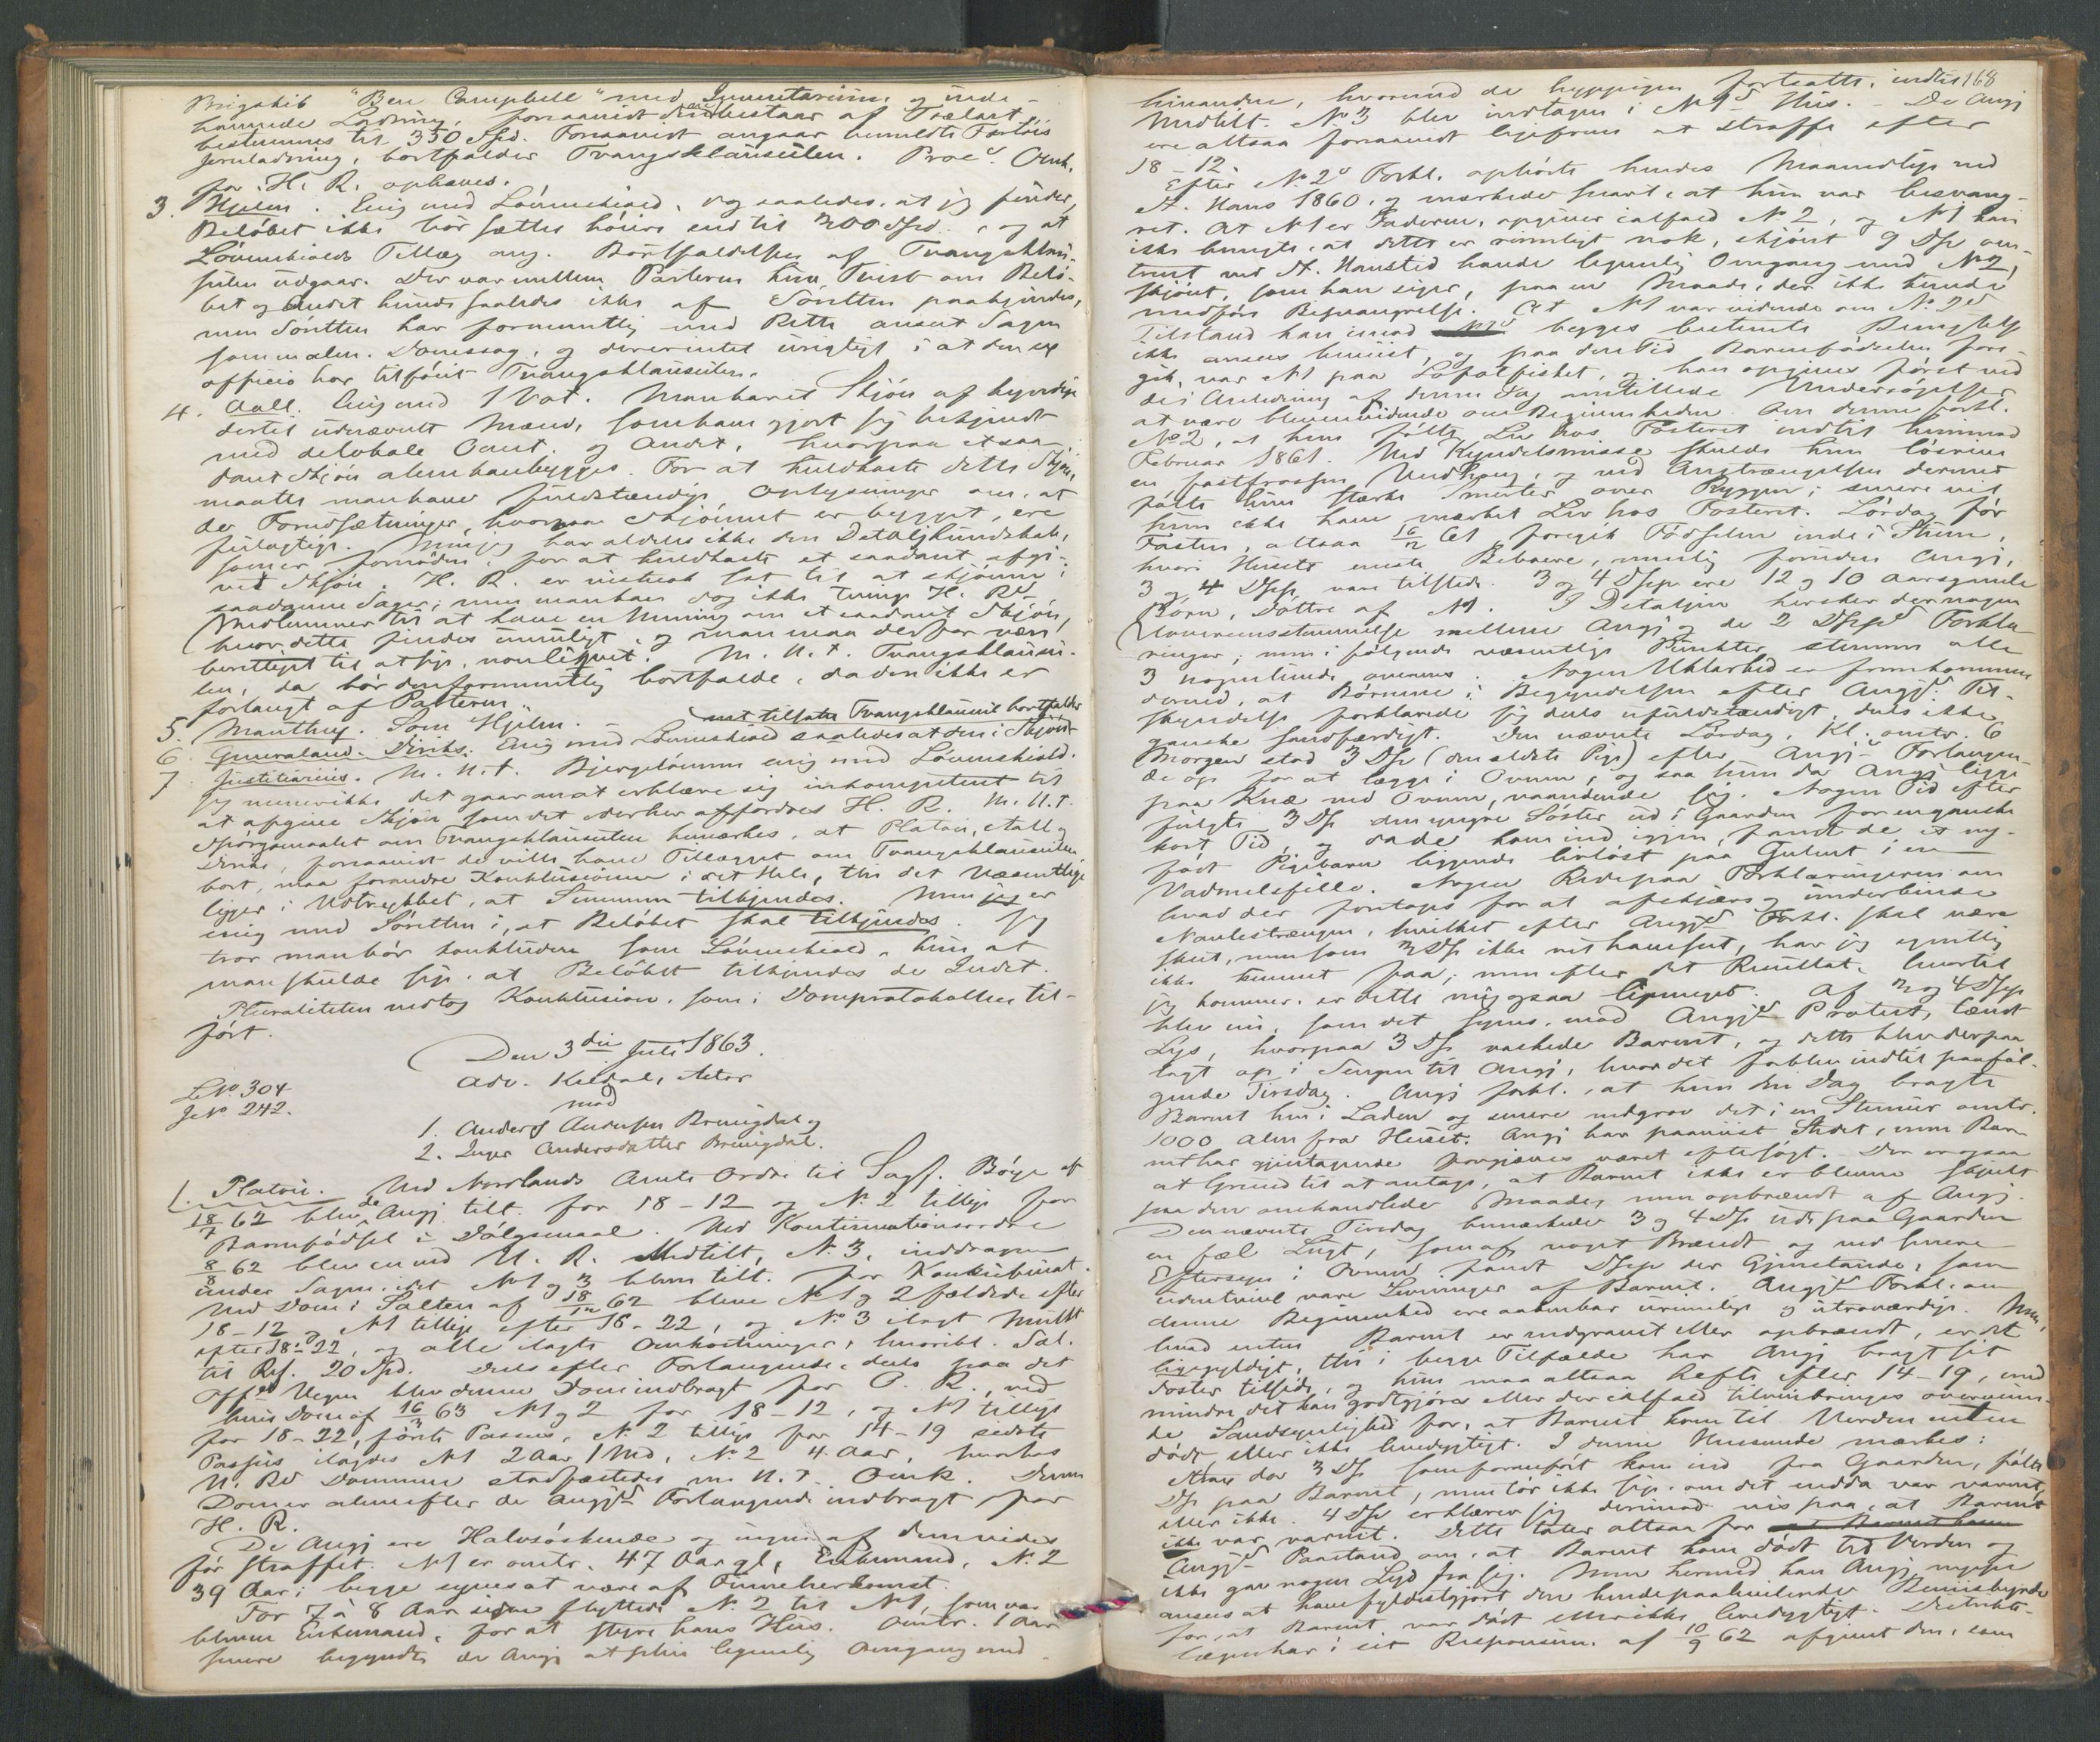 Brigskib "Ben Campbell" med Inventarium og inde-
havende Ladning, forsaavidt den ei bestaar af Trælast,
bestemmes til 350 Spd. Forsaavidt angaar bemeldte Fartøis
Jernladning, bortfalder Tvangsklausulen. Proc's Omk.
for H. R. ophæves.
3. Hjelm. Enig med Løvenskiold, dog saaledes, at jeg finder,
Beløbet ikke bør sættes høiere end til 300 Spd., og at
Løvenskiolds Tillæg ang. Bortfaldelsen af Tvangsklau-
sulen udgaar. Der var mellem Parterne kun Tvist om Belø-
bet og Andet kunde saaledes ikke af Søretten paakjendes,
men Søretten har formentlig med Rette anseet Sagen
som en alm. Domssag, og der er intet urigtigt i at den ex
officio har tilføiet Tvangsklausulen.
4. Aall. Enig med 1 Vot. Man har et Skjøn af kyndige
dertil udnævnte Mænd, som have gjort sig bekjendt
med de lokale Omst. og Andet, hvorpaa et saa-
dant Skjøn alene kan bygges. For at kuldkaste dette Skjøn,
maatte man have fuldstændige Oplysninger om, at
de Forudsætninger, hvorpaa Skjønnet er bygget, ere
feilagtige. Men jeg har aldeles ikke den Detaljkundskab,
som er fornøden, for at kuldkaste et saadant afgi-
vet Skjøn. H. R. er vistnok sat til at skjønne i
saadanne Sager; men man kan dog ikke tvinge H. R.s
Medlemmer til at have en Mening om et saadant Skjøn,
hvor dette findes umuligt, og man maa derfor være
berettiget til at sige, non liquet. M. H. t. Tvangsklausu-
len, da bør den formentlig bortfalde, da den ikke er
forlangt af Parterne.
5. Manthey. Som Hjelm. —
6. Generalaud. Diriks. Enig med Løvenskiold saaledes at den i Skjøn-
net tilsatte Tvangsklausul bortfalder
7. Justitiarius. M. H. t. Bjergelønnen enig med Løvenskiold.
Jeg mener ikke det gaar an at erklære sig inkompetent til
at afgive Skjøn som det der her affordres H. R. M. H. t.
Spørgsmaalet om Tvangsklausulen bemærkes, at Platou, Aall og
Diriks, forsaavidt de ville have Tillægget om Tvangsklausulen
bort, maa forandre Konklusionen i det Hele, thi det Væsentlige
ligger i Udtrykket, at Summen tilkjendes. Men jeg er
enig med Søretten i, at Beløbet skal tilkjendes. Jeg
tror man bør konkludere som Løvenskiold, kun at
man skulde sige, at Beløbet tilkjendes de Indst.
Pluraliteten vedtog Konklusion, som i Domsprotokollen til-
ført.
Den 3die Juli 1863.
L No 304
J No 242.
Adv. Kildal, Aktor
mod
1. Anders Andersen Brungdal og
2. Inger Andersdatter Brungdal.
1. Platou. Ved Nordlands Amts Ordre til Sagf. Böye af
18/7 62 blev de Angj tilt. for 18-12 og No 2 tillige for
Barnefødsel i Dølgsmaal. Ved Kontinuationsordre
8/8 62 blev en ved U. R. Medtilt, No 3, inddragen
under Sagen, idet No 1 og 3 bleve tilt. for Konkubinat.
Ved Dom i Salten af 18/12 62 bleve No 1 og 2 fældede efter
18-12 og No 1 tillige efter 18-22, og No 3 ilagt Mulkt
efter 18-22, og alle ilagte Omkostninger, hvoribl. Sal.
til Ref. 20 Spd. Dels efter Forlangende, dels paa det
Offes Vegne blev denne Dom indbragt for O. R., ved
hvis Dom af 16/3 63 No 1 og 2 for 18-12, og No 1 tillige
for 18-22, første Passus, No 2 tillige for 14-19 sidste
Passus ilagdes No 1 2 Aar 1 Md, No 2 4 Aar, hvorhos
U. Rs Dommen stadfæstedes m. H. t. Omk. Denne
Dom er alene efter de Angjs Forlangende indbragt for
H. R.
De Angj ere Halvsøskende og ingen af dem vides
før straffet. No 1 er omtr. 47 Aar gl, Enkemand, No 2
39 Aar; begge synes at være af Finneherkomst.
For 7 à 8 Aar siden flyttede No 2 til No 1, som var
bleven Enkemand, for at styre hans Hus. Omtr. 1 Aar
senere begyndte de Angj at pleie legemlig Omgang med
168
hinanden, hvormed de hyppigen fortsatte, indtil
Medtilt. No 3 blev indtagen i No 1s Hus. — De Angj
ere altsaa forsaavidt ligefrem at straffe efter
18-12.
Efter No 2s Forkl. ophørte hendes Maanedlige ved
St. Hans 1860, og mærkede snart, at hun var besvang-
ret. At No 1 er Faderen, opgiver ialfald No 2, og No 1 kan
ikke benegte, at dette er rimeligt nok, skjønt 9 Dsse om-
trent ved St. Hanstid havde legemlig Omgang med No 2,
skjønt, som han siger, paa en Maade, der ikke kunde
medføre Besvangrelse. At No 1 var vidende om No 2s
Tilstand kan imod begges bestemte Benegtelse
ikke ansees beviist, og paa den Tid Barnefødselen fore-
gik, var No 1 paa Lofotfisket, og han opgiver først ved
de i Anledning af denne Sag anstillede Undersøgelser
at være bleven vidende om Begivenheden. Om denne forkl.
No 2, at hun følte Liv hos Fosteret indtil henimod
Februar 1861. Ved Kyndelsmisse skulde hun løsrive
en fastfrossen Vedstang, og ved Anstrængelsen dermed
følte hun stærke Smerter over Ryggen; senere vil
hun ikke have mærket Liv hos Fosteret. Lørdag før
Fasten, altsaa 16/2 61, foregik Fødselen inde i Stuen,
hvori Husets eneste Beboere, nemlig foruden Angj,
3 og 4 Dsse, vare tilstede. 3 og 4 Dsse ere 12 og 10 Aarsgamle
Børn, Døttre af No 1. I Detaljen hersker der nogen
Uoverensstemmelse mellem Angj og de 2 Dsses Forkla-
ringer; men i følgende væsentlige Punkter stemme alle
3 nogenlunde overens. Nogen Uklarhed er fremkommen
derved, at Børnene i Begyndelsen efter Angjs Til-
skyndelse forklarede sig dels ufuldstændigt, dels ikke
ganske sandfærdigt. Den nævnte Lørdag, Kl. omtr. 6
Morgen stod 3 Dsse (den ældste Pige) efter Angjs Forlangen-
de op for at lægge i Ovnen, og saa hun da Angj ligge
paa Knæ ved Ovnen, vaandende sig. Nogen Tid efter
fulgte 3 Dsse den yngre Søster ud i Gaarden for en ganske
kort Tid, og da de kom ind igjen, fandt de et ny-
født Pigebarn liggende livløst paa Gulvet i en
Vadmelsfille. Nogen Rede paa Forklaringerne om
hvad der foretoges for at afskjære og underbinde
Navlestrængen, hvilket efter Angjs Forkl. skal være
skeet, men som 3 Dsse ikke vil have seet, har jeg egentlig
ikke kunnet faa; men efter det Resultat, hvortil
jeg kommer, er dette mig ogsaa ligemeget. Af 3 og 4 Dsse
blev nu, som det synes, mod Angjs Protest, tændt
Lys, hvorpaa 3 Dsse vaskede Barnet, og dette blev derpaa
lagt op i Sengen til Angj, hvor det forblev indtil paaføl-
gende Tirsdag. Angj forkl., at hun den Dag bragte
Barnet hen i Laden og senere nedgrov det i en Stenur omtr.
1000 Alen fra Huset. Angj har paaviist Stedet, men Bar-
net har gjentagende forgjæves været eftersøgt. Der er ogsaa
al Grund til at antage, at Barnet ikke er blevet skjult
paa den omhandlede Maade, men opbrændt af Angj.
Den nævnte Tirsdag bemærkede 3 og 4 Dsse ude paa Gaarden
en fæl Lugt, som af noget Brændt og ved senere
Eftersyn i Ovnen fandt Dsse der Gjenstande, som
udentvivl vare Levninger af Barnet. Angjs Forkl. om
denne Begivenhed ere aabenbar urimelige og utroværdige. Men,
hvad enten Barnet er nedgravet eller opbrændt, er det
ligegyldigt, thi i begge Tilfælde har Angj bragt sit
Foster tilside, og hun maa altsaa hefte efter 14-19, med-
mindre det kan godtgjøres eller der ialfald tilveiebringes overveien-
de Sandsynlighed for, at Barnet kom til Verden enten
dødt eller ikke levedygtigt. I denne Henseende mærkes:
Strax da 3 Dsse som foranført kom ind fra Gaarden, følte
Dsse paa Barnet, men tør ikke sige, om det endda var varmt,
eller ikke. 4 Dsse erklærer sig derimod vis paa, at Barnet
ikke var varmt. Dette taler altsaa for
Angjs Paastand om, at Barnet kom dødt til Verden og
ikke gav nogen Lyd fra sig. Men hermed kan Angj neppe
ansees at have fyldestgjort den hende paahvilende Beviisbyrde
for, at Barnet var dødt eller ikke levedygtigt. Distrikts-
lægen har i sit Responsum af 10/9 62 afgivet den, som